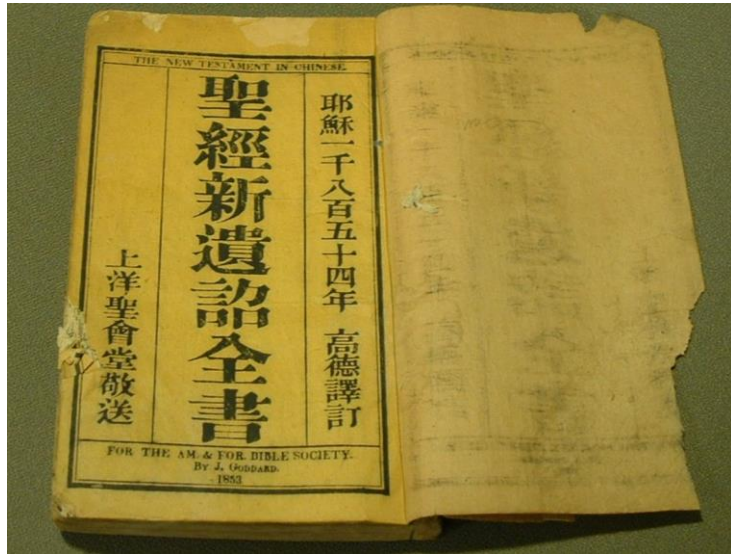 THE NEW TESTAMENT IN CHINESE.
耶穌一千八百五十四年 高德譯訂
聖經新遺詔全書
上洋聖會堂敬送
FOR THE AM. & FOR. BIBLE SOCIETY.
BY J. GODDARD.
1853